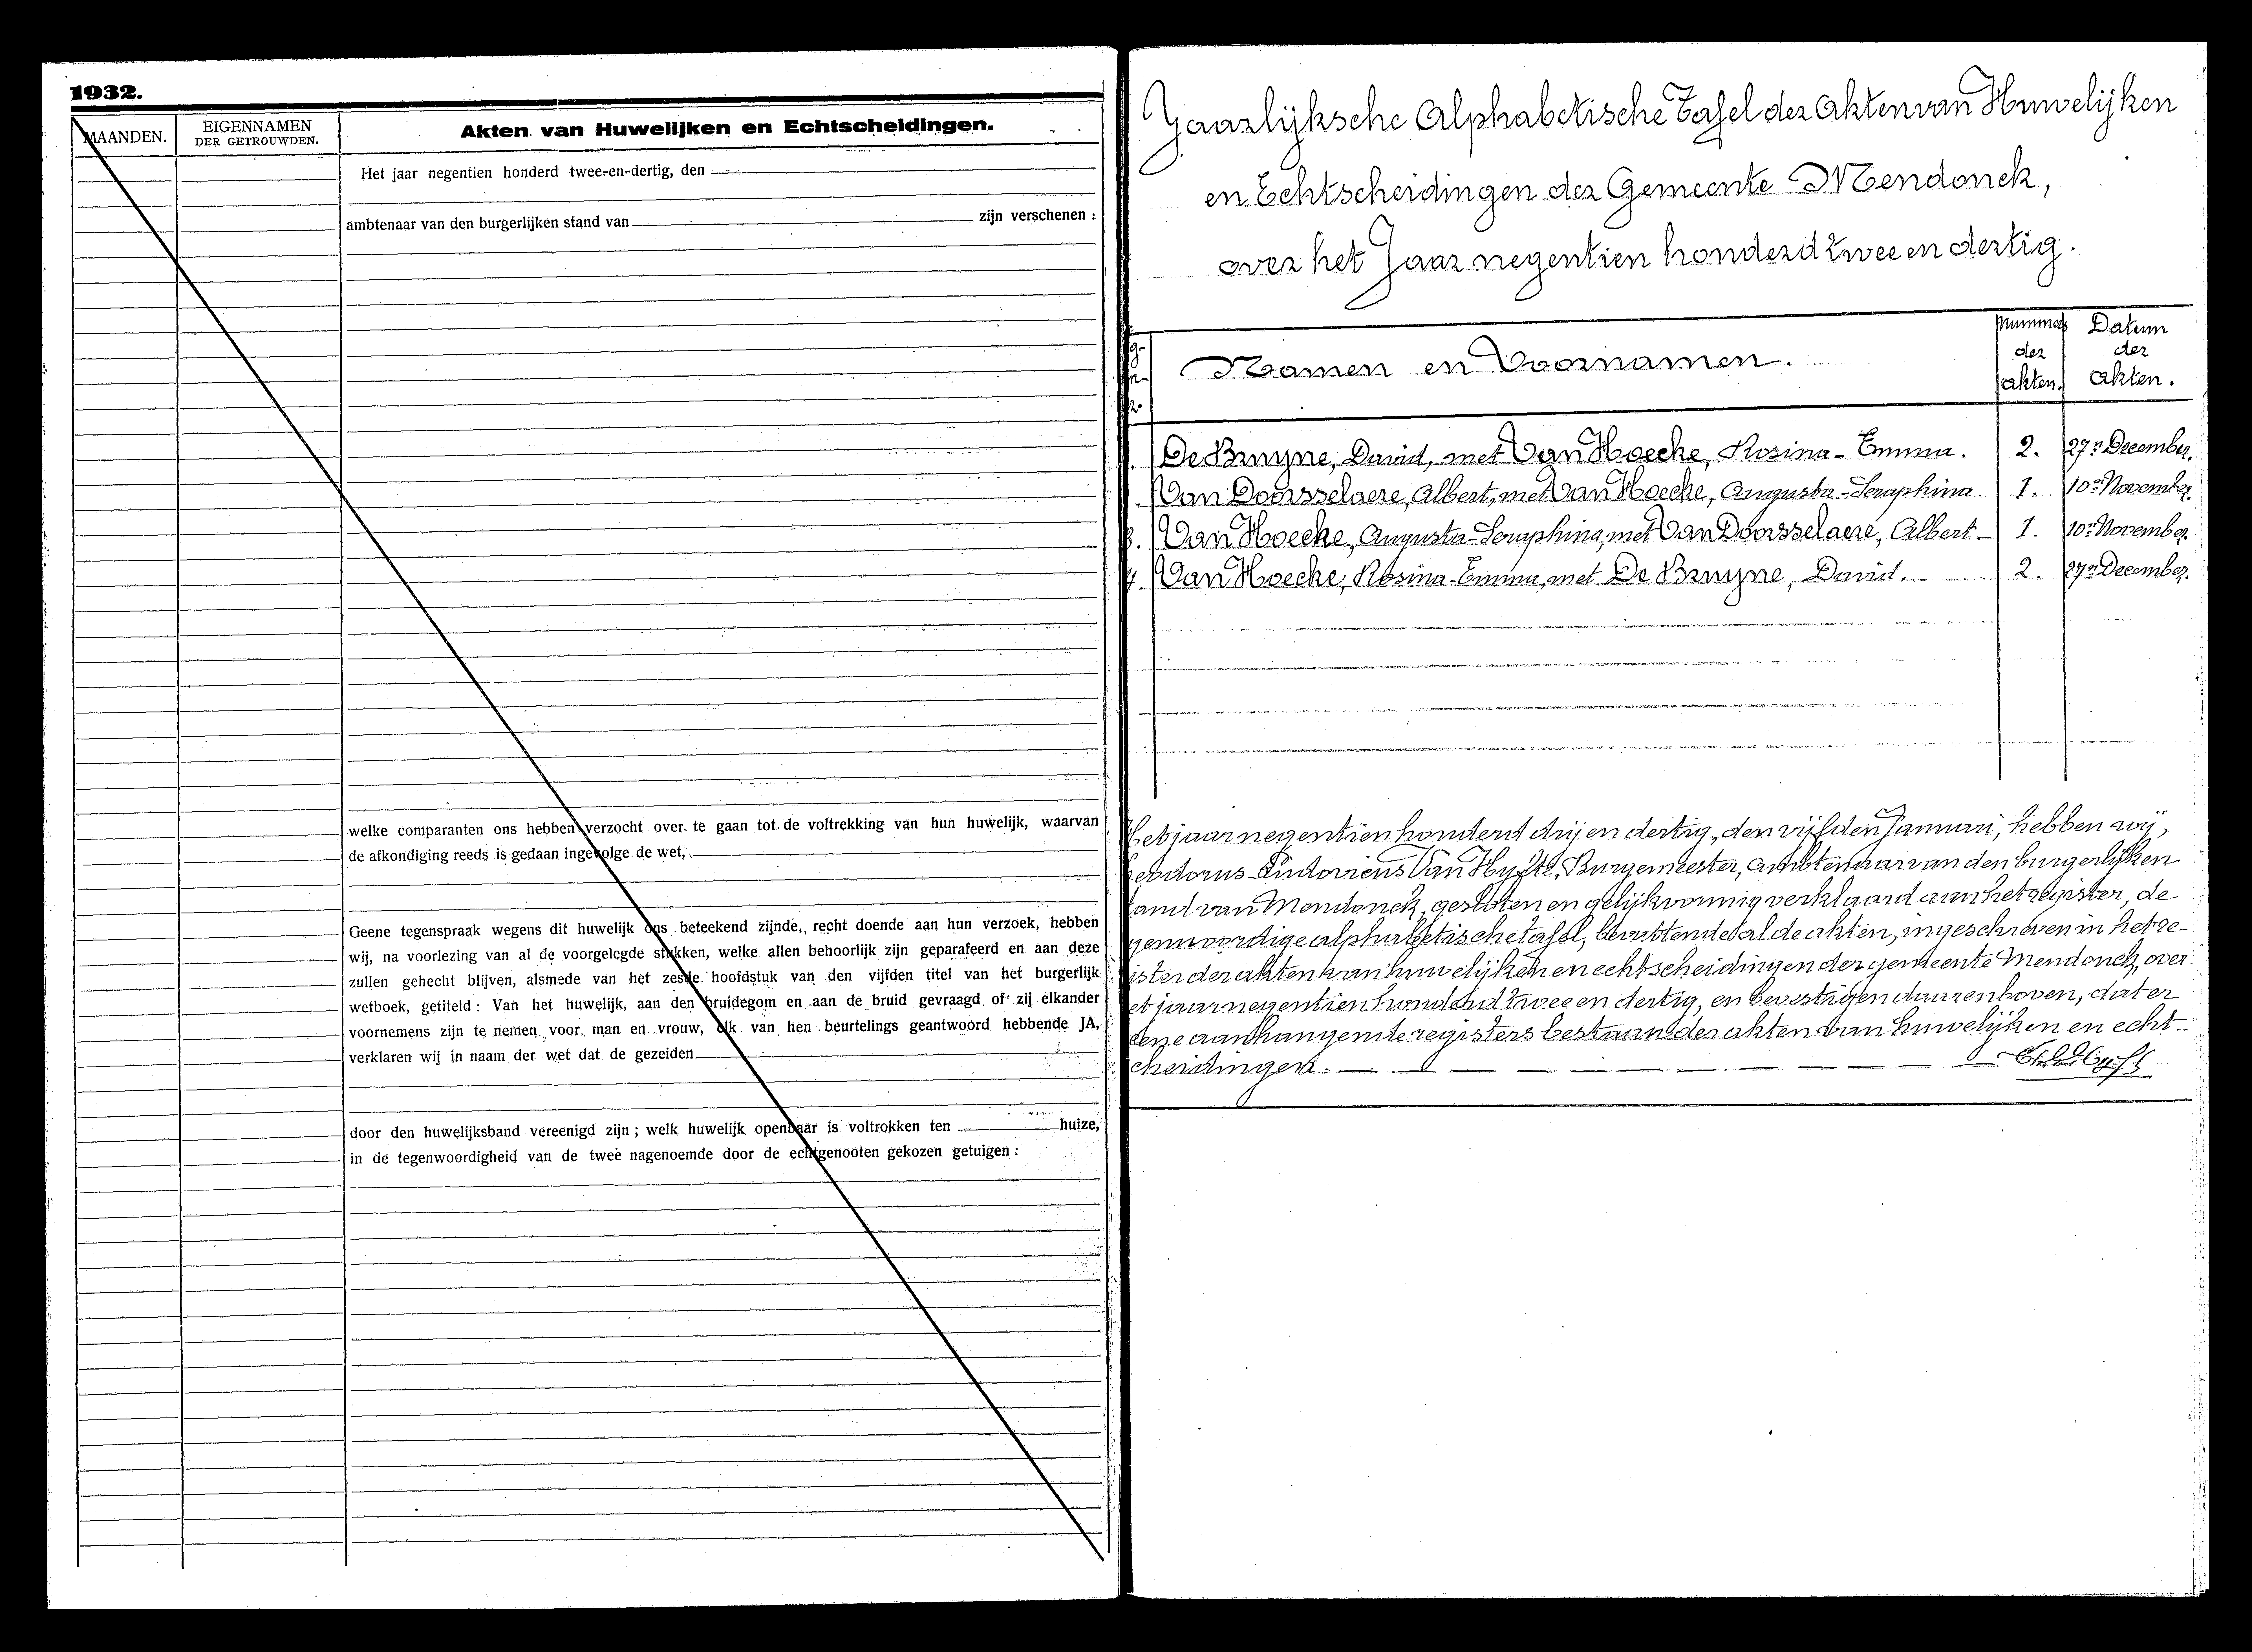 1932.
MAANDEN.
EIGENNAMEN
DER GETROUWDEN.
Akten van Huwelijken en Echtscheidingen.
Het jaar negentien honderd twee-en-dertig, den
ambtenaar van den burgerlijken stand van zijn verschenen :
welke comparanten ons hebben verzocht over te gaan tot de voltrekking van hun huwelijk, waarvan
de afkondiging reeds is gedaan ingevolge de wet,
Geene tegenspraak wegens dit huwelijk ons beteekend zijnde, recht doende aan hun verzoek, hebben
wij, na voorlezing van al de voorgelegde stukken, welke allen behoorlijk zijn geparafeerd en aan deze
zullen gehecht blijven, alsmede van het zesde hoofdstuk van den vijfden titel van het burgerlijk
wetboek, getiteld : Van het huwelijk, aan den bruidegom en aan de bruid gevraagd of zij elkander
voornemens zijn te nemen voor man en vrouw, elk van hen beurtelings geantwoord hebbende JA,
verklaren wij in naam der wet dat de gezeiden
door den huwelijksband vereenigd zijn ; welk huwelijk openbaar is voltrokken ten huize,
in de tegenwoordigheid van de twee nagenoemde door de echtgenooten gekozen getuigen :
Jaarlijksche Alphabetische Tafel der Akten van Huwelijken
en Echtscheidingen der Gemeente Mendonck,
over het Jaar negentien honderd twee en dertig.
Namen en Voornamen.
Nummer
der
akten.
Datum
der
akten.
De Bruyne, David, met Van Hoecke, Rosina-Emma. 2. 27n December.
Van Doorsselaere, Albert, met Van Hoecke, Augusta-Seraphina. 1. 10n November.
3. Van Hoecke, Augusta-Seraphina, met Van Doorsselaere, Albert. 1. 10n November.
4. Van Hoecke, Rosina-Emma, met De Bruyne, David. 2. 27n December.
Het jaar negentien honderd drij en dertig, den vijfden Januari, hebben wij,
Ludovicus Van Hyfte, Burgemeester, Ambtenaar van den burgerlijken
tand van Mendonck, gesloten en gelijkvormig verklaard aan het register, de
genwoordige alphabetische tafel, bevattende al de akten, ingeschreven in het re-
ister der akten van huwelijken en echtscheidingen der gemeente Mendonck, over
et jaar negentien honderd twee en dertig, en bevestigen daarenboven, dat er
eene aanhangende registers bestaan der akten van huwelijken en echt-
cheidingen.